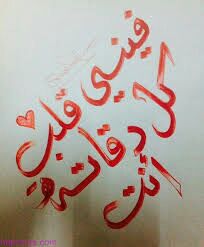 فيني قلب
كل دقاته
أنت